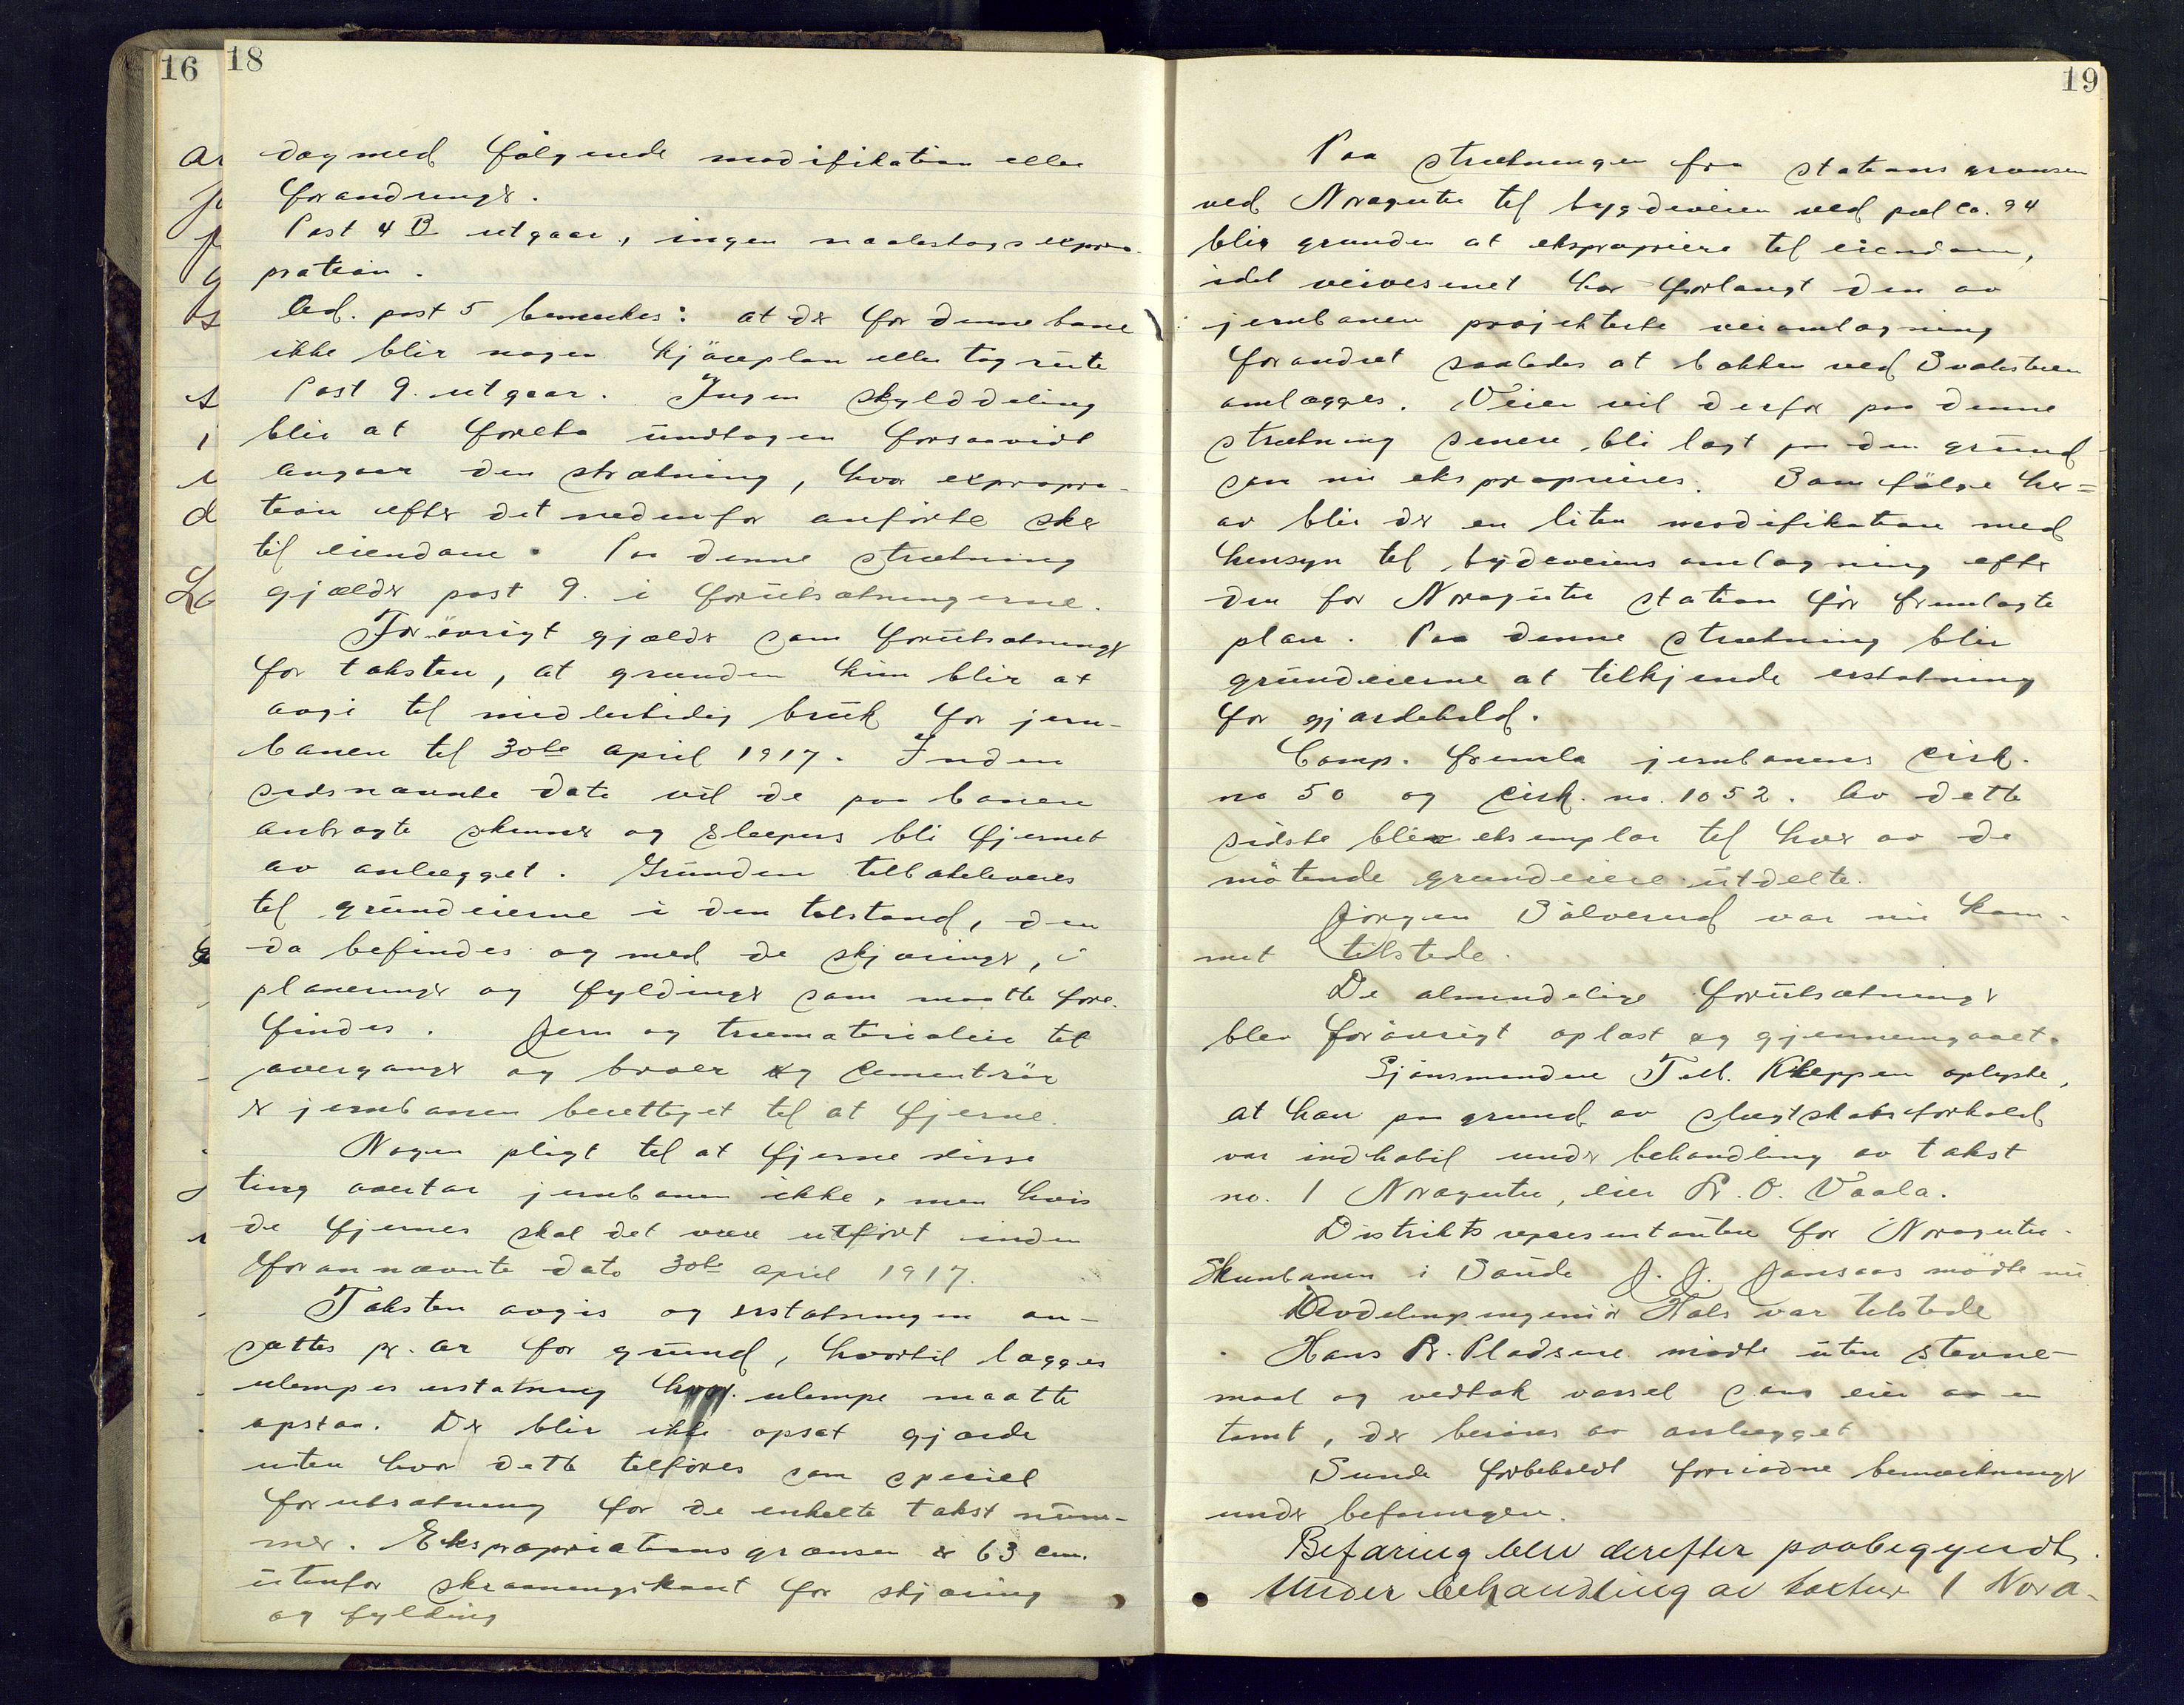 16
18
dog med følgende modifikation eller
forandringer.
Post 4 B utgaar, ingen naalestogsexpro-
priation.
Ad. post 5 bemerkes: at der for denne bane
ikke blir nogen kjøreplan eller togrute
Post 9. utgaar. Ingen skylddeling
blir at foreta undtagen forsaavidt
angaar den strækning, hvor expropria-
tion efter det nedenfor anførte sker
til eiendom. Paa denne strækning
gjælder post 9. i forutsætningerne.
Forøvrigt gjælder som forutsætninger
for taksten, at grunden kun blir at
avgi til midlertidig bruk for jern-
banen til 30te april 1917. Inden
sidsnævnte dato vil de paa banen
anbragte skinner og sleepers bli fjernet
av anlegget. Grunden tilbakeleveres
til grundeierne i den tilstand, den
da befindes og med de skjæringer,
planeringer og fyldinger som maatte fore-
findes. Jern og træmaterialer til
overganger og broer og cementrør
er jernbanen berettiget til at fjerne.
Nogen pligt til at fjerne disse
ting overtar jernbanen ikke, men hvis
de fjernes skal det være utført inden
forannævnte dato 30te april 1917.
Taksten avgis og erstatningen an-
sættes pr. ar for grund, hvortil lægges
ulempeserstatning hvor ulempe maatte
opstaa. Der blir ikke opsat gjærde
uten hvor dette tilføies som speciel
forutsætning for de enkelte takst num-
mer. Ekspropriationsgrænsen er 63 cm.
utenfor skraaningskant for skjæring
og fylding
19
Paa strækningen fra stationsgrænsen
ved Noragutu til bygdeveien ved pæl ca. 94
blir grunden at ekspropriere til eiendom,
idet veivesenet har forlangt den av
jernbanen projekterte veiomlægning
forandret saaledes at bakken ved Svalesteen
omlægges. Veien vil derfor paa denne
strækning senere bli lagt paa den grund
som nu eksproprieres. Som følge her=
av blir der en liten modifikation med
hensyn til bydeveiens omlægning efter
den for Noragutu station før fremlagte
plan. Paa denne strækning blir
grundeierne at tilkjende erstatning
for gjærdehold.
Comp. fremla jernbanens cirk.
no 50 og cirk. no. 1052. Av dette
sidste blev eksemplar til hver av de
møtende grundeiere utdelte.
Jørgen Sølverud var nu kom-
met tilstede.
De almindelige forutsætninger
blev forøvrigt oplæst og gjennemgaaet.
Skjønsmanden Tell. Kleppen oplyste,
at han paa grund av slegtskabsforhold
var indhabil under behandling av takst
no. 1 Noragutu, eier Pr. O. Vaala.
Distriktsrepresentanten for Noragutu-
Skunbanen i Saude J. J. Jansaas mødte nu
Avdelingsingeniør Hals var tilstede
Hans Pr. Pladsene mødte uten stevne-
maal og vedtok varsel som eier av en
tomt, der berøres av anlegget
Sunde forbeholdt fornødne bemerkninger
under befaringen.
Befaring blev derefter paabegyndt.
Under behandling av takstnr 1 Nora-